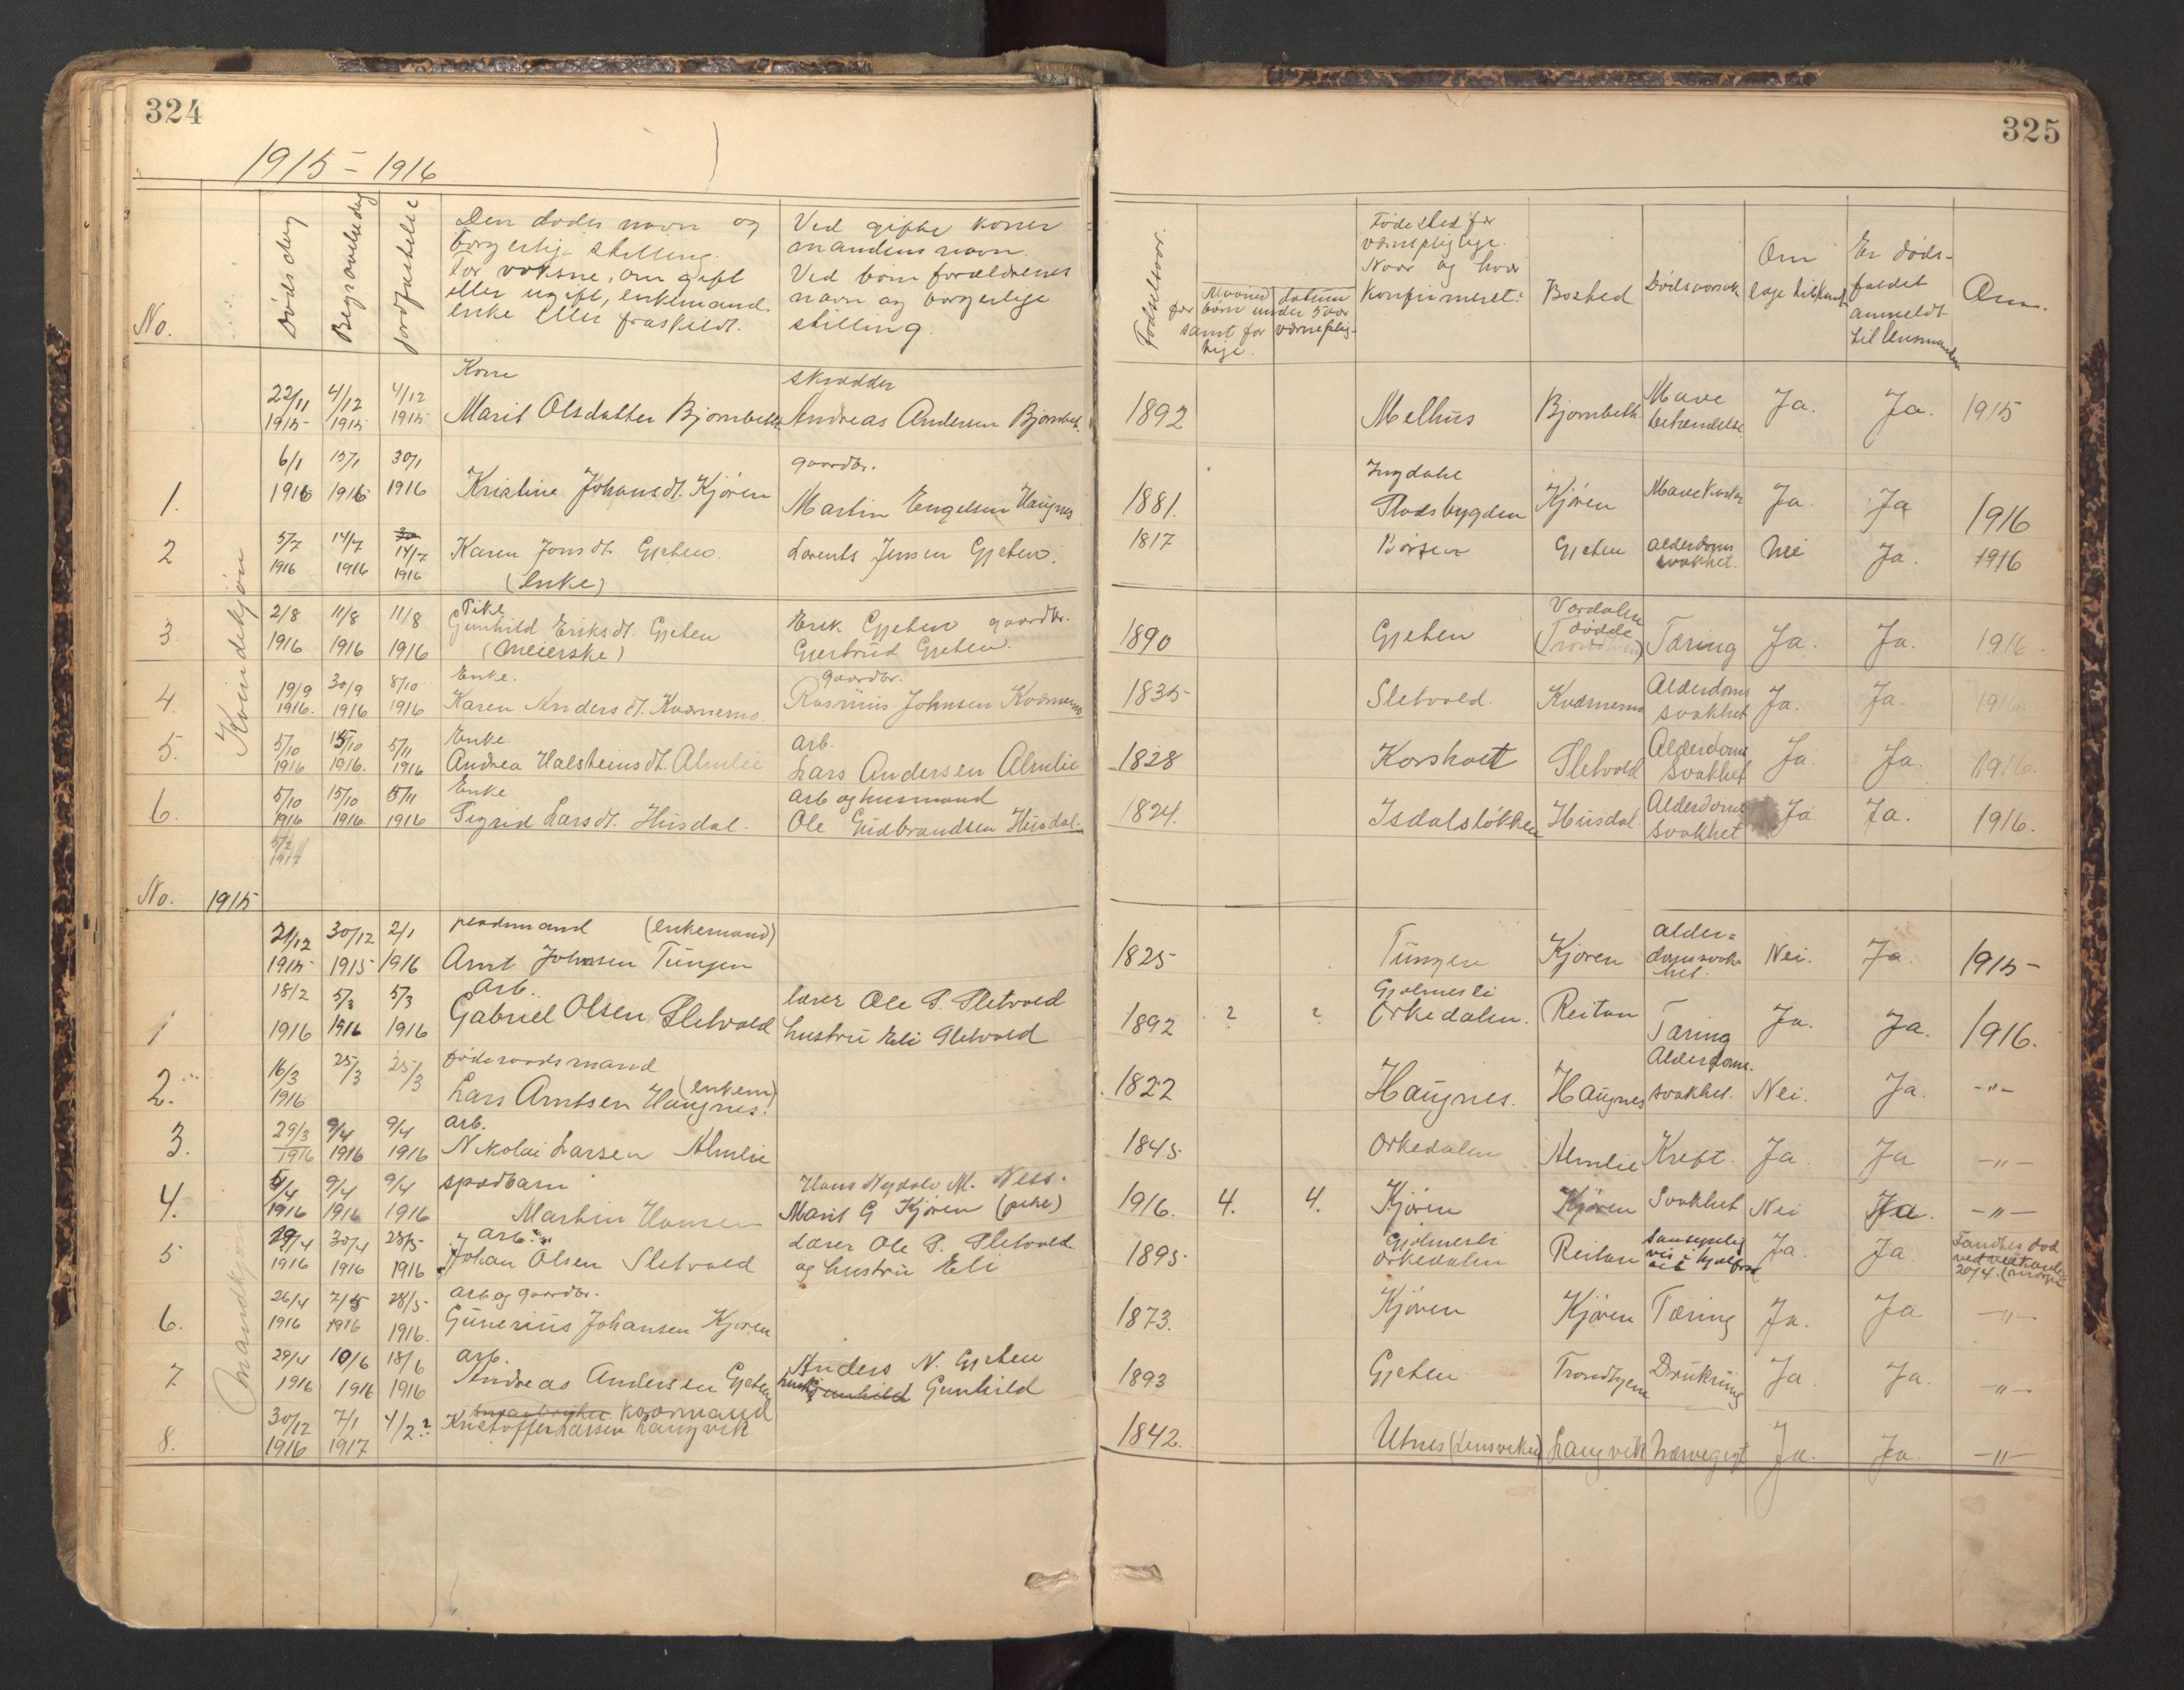 324
325
1915 - 1916
No.
Dødsdag
Begravelsedag
jordfæstelse
Den dødes navn og
borgerlige stilling.
For voksne, om gift
eller ugift, enkemand
enke eller fraskildt.
Ved gifte koner
mandens navn.
Ved børn forældrenes
navn og borgerlige
stilling.
Fødselsaar.
Maaned datum
for børn under 5 aar
samt for værneplig-
tige.
Fødested for
værnepligtige.
Naar og hvor
konfirmeret:
Bosted
Dødsaarsak
Om
læge tilkaldt
Er døds-
faldet
anmeldt
til lensmanden
Anm.
Kvindekjøn
Kone skrædder
22/11 1915 4/12 1915 4/12 1915 Marit Olsdatter Bjørnbeth Andreas Andersen Bjørnbet. 1892 Melhus Bjørnbeth Mave betændelse Ja. Ja. 1915
gaardbr.
1. 6/1 1916 15/1 1916 30/1 1916 Kristine Johansdt. Kjøren Martin Engelsen Haugnes 1881. Ingdale Stadsbygden Kjøren Ja. Ja 1916
2 5/7 1916 14/7 1916 14/7 1916 Karen Jonsdt. Gjeten Lorents Jensen Gjeten. 1817 Børsen Gjeten Alderdoms svakhet. Nei Ja. 1916
(enke)
Pike
3. 2/8 1916 11/8 1916 11/8 1916 Gunhild Eriksdt. Gjeten Erik Gjeten gaardbr. 1890 Gjeten Tæring Ja. Ja. 1916.
(Meierske) Gjertrud Gjeten.
Enke. gaardbr.
4. 19/9 1916. 30/9 1916 8/10 1916 Karen Andersdt. Kværnmo. Rasmus Johnsen Kværnmo 1835 Sletvold. Kværnmo Alderdoms svakhet Ja. Ja. 1916
Enke. arb.
5. 5/10 1916 15/10 1916. 5/11 1916 Andrea Halsteinsdt. Almlie Lars Andersen Almlie 1828 Korsholt Sletvold Alderdoms svakhet Ja. Ja. 1916.
Enke arb og husmand
6. 5/10 1916 15/10 1916. 5/11 1916 Sigrid Larsdt. Husdal. Ole Gudbrandsen Husdal. 1824. Isdalsløkken Husdal Alderdoms svakhet Ja. Ja. 1916.
5/2 1917
No. 1915
Mandkjøn
(enkemand)
21/12 1915 30/12 1915 2/1 1916 Arnt Johnsen Tungen 1825 Tungen Kjøren alder= doms svak- het. Nei. Ja 1915
arb.
1 18/2 1916 5/3 1916 5/3 1916 Gabriel Olsen Sletvold lærer Ole P. Sletvold 1892 ? ? Gjølmesli Orkedalen. Reitan Tæring Ja. Ja. 1916.
hustru Eli Sletvold
føderaadsmand
2. 16/3 1916 25/3 25/3 Lars Arntsen Haugnes. (enkem) 1822 Haugnes. Haugnes Alderdoms. svakhet. Nei. Ja. -"-
arb.
3. 29/3 1916 9/4 1916 9/4 1916 Nikolai Larsen Almlie 1845 Orkedalen Almlie Kreft. Ja. Ja -"-
spædbarn
4. 5/4 1916 9/4 1916 9/4 1916 Martin Hansen Hans Nydalv M. Ness. 1916. 4. 4. Kjøren Kjøren Svakhet Nei Ja. -"-
Marit G Kjøren (pike)
arb.
5 29/4 1916 30/4 1916 28/5 1916 Johan Olsen Sletvold Lærer Ole P. Sletvold 1895 Gjølmesli Orkedalen Reitan Ja. Ja. Fandtes død
og hustru Eli
arb og gaardbr.
6. 26/4 1916 7/5 1916 28/5 1916. Gunerius Johansen Kjøren 1873. Kjøren Kjøren Tæring Ja. Ja -"-
arb.
7 29/4 1916 10/6 1916 18/6 1916 Andreas Andersen Gjeten Anders N. Gjeten 1893 Gjeten Trondhjem Drukning Ja Ja. -"-
hust. Gunhild Gunhild
kaarmand
8. 30/12 1916 7/1 1917 4/2? Kristoffer Larsen Langvik 1842. Utnes (Lensviken) Langvik Ja. Ja. -"-